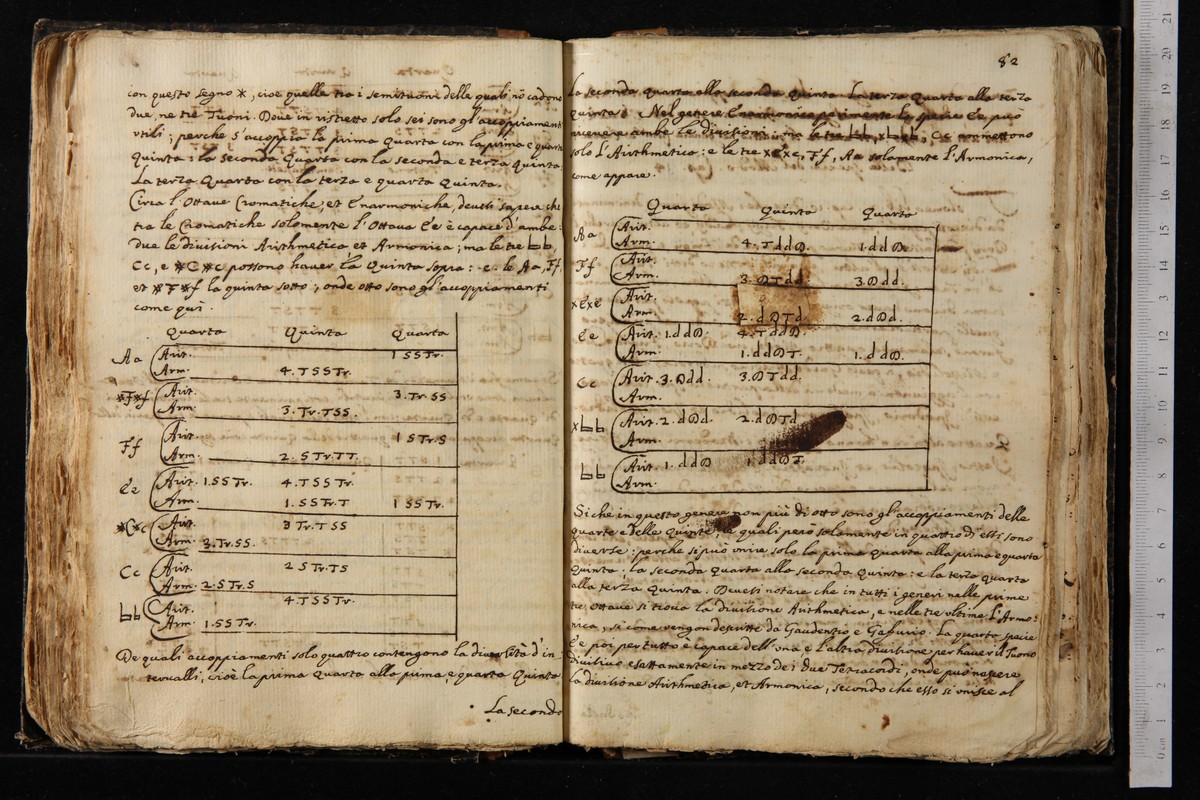 con questo segno *, cioè quelle tra i semituoni delle quali nō cadono
due, ne tre Tuoni. Doue in ristretto solo sei sono gl'accoppiamenti
vtili; perche s'accoppia la prima Quarta con la prima e quarta
Quinta: la seconda Quarta con la seconda e terza Quinta.
La terza Quarta con la terza e quarta Quinta.
Circa l'Ottaue Cromatiche, et Enarmoniche, deuesi sapere che
tra le Cromatiche solamente l'Ottaua Ee è capace d'ambe
due le diuisioni Arithmetica et Armonica; ma le tre bb,
Cc, e *C*c possono hauer la Quinta sopra: e le Aa, Ff,
et *F*f la quinta sotto; onde otto sono gl'accoppiamenti
come quì.
Quarta Quinta Quarta
Aa Arit. 1 SSTr.
Arm. 4. TSSTr.
*F*f Arit. 3. Tr. SS
Arm. 3. Tr. TSS.
Ff Arit. 1 STr.S
Arm. 2. STr.TT.
Ee Arit. 1.SSTr. 4. TSSTr.
Arm. 1. SSTr.T 1 SSTr.
*C*c Arit. 3 Tr.TSS
Arm. 3. Tr.SS.
Cc Arit. 2 STr.TS
Arm. 2.STr.S
bb Arit. 4. TSSTr.
Arm. 1.SSTr.
De quali accoppiamenti solo quattro contengono la diuersità d'in
terualli, cioè la prima Quarta alla prima, e quarta Quinta
La seconda
82
La seconda quarta alla seconda Quinta. La terza Quarta alla terza
quinta. Nel genere Enarmonico parimente la specie Ee può
riceuere ambe le diuisioni: ma le tre bb, xbxb, Cc ammettono
solo l'Arithmetica: e le tre xExe, Ff, Aa solamente l'Armonica,
come appare.
Quarta Quinta Quarta
Aa Arit.
Arm. 4. TddD. 1.ddD.
Ff Arit.
Arm. 3. DTdd. 3.Ddd.
xExe Arit.
Arm. 2. dDTd. 2.dDd.
Ee Arit. 1.ddD. 4. TddD.
Arm. 1.ddDT. 1.ddD.
Cc Arit. 3. Ddd. 3.DTdd.
Arm.
xbb Arit. 2. dDd. 2.dDTd
Arm.
bb Arit. 1.ddD 1.ddDT.
Arm.
Siche in questo genere non più di otto sono gl'accoppiamenti delle
quarte e delle Quinte, e quali però solamente in quattro di essi sono
diuerse: perche si può vnire solo la prima quarta alla prima e quarta
quinta. La seconda quarta alla seconda Quinta: e la terza quarta
alla terza Quinta. Deuesi notare che in tutti i generi nelle prime
tre Ottaue si troua la diuisione Arithmetica, e nelle tre vltime l'Armo-
nica, si come vengon descritte da Gaudentio e Gafurio. La quarta specie
Ee poi per tutto è capace dell'vna e l'altra diuisione per hauer il Tuono
diuisiuo esattamente in mezzo de i due Tetracordi, onde può nascere
la diuisione Arithmetica, et Armonica, secondo che esso si vnisce al